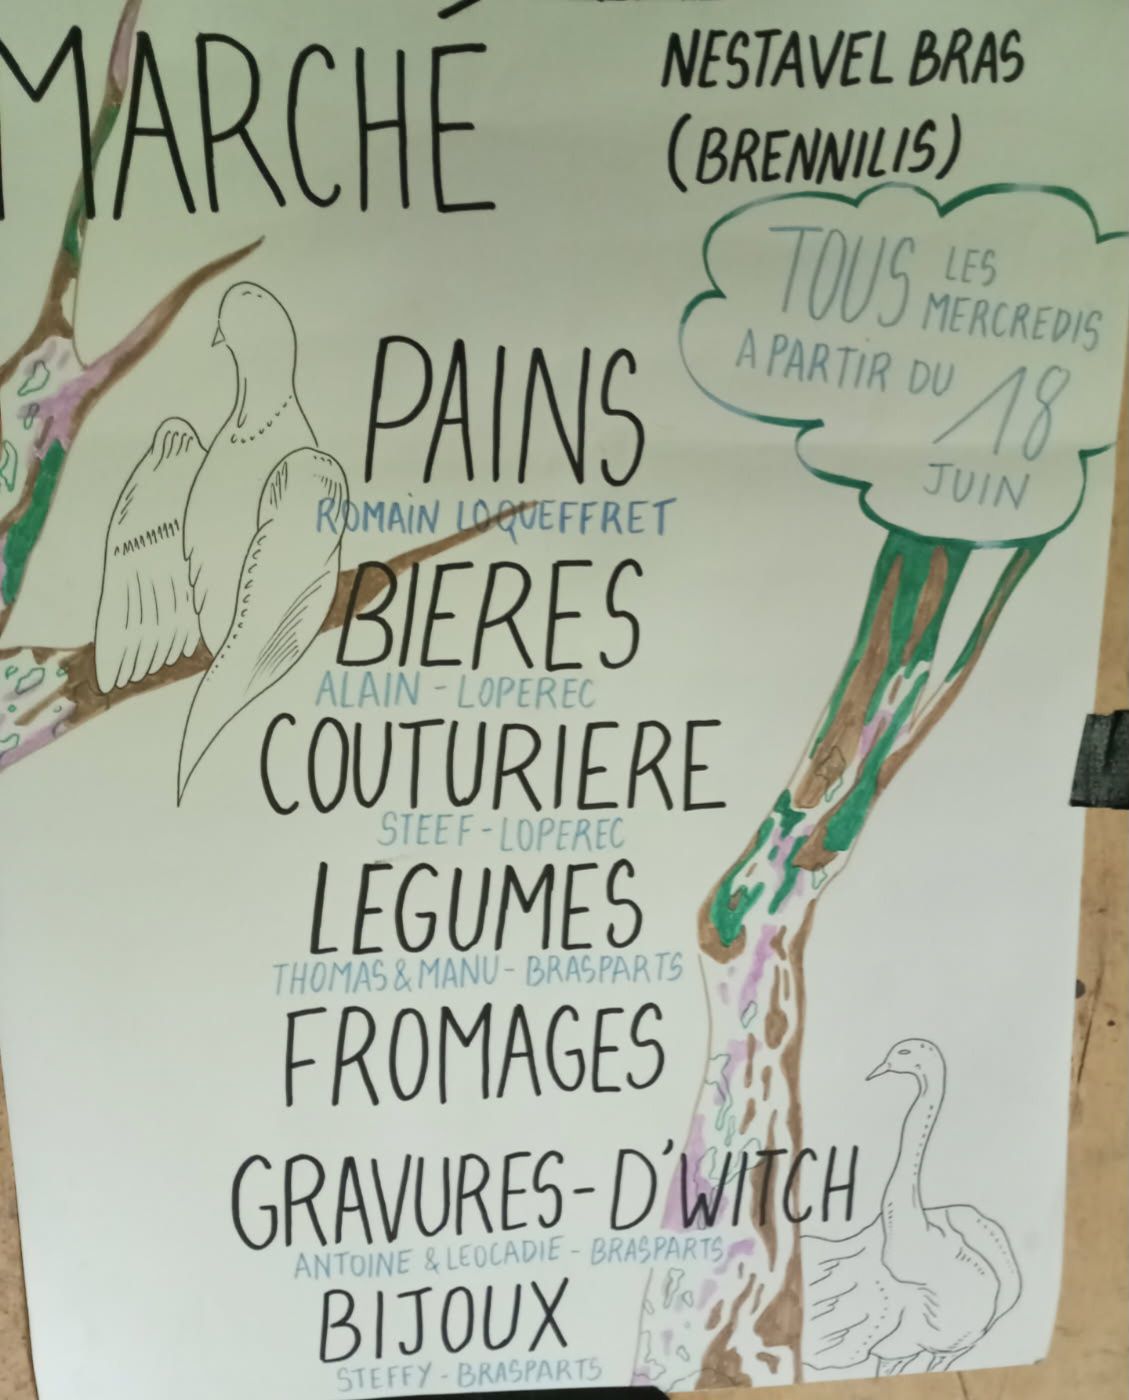 MARCHÉ
NESTAVEL BRAS
(BRENNILIS)
TOUS LES
MERCREDIS
A PARTIR DU 18
JUIN
PAINS
ROMAIN LOQUEFFRET
BIERES
ALAIN - LOPEREC
COUTURIERE
STEEF - LOPEREC
LEGUMES
THOMAS & MANU - BRASPARTS
FROMAGES
GRAVURES - D'WITCH
ANTOINE & LEOCADIE - BRASPARTS
BIJOUX
STEFFY - BRASPARTS